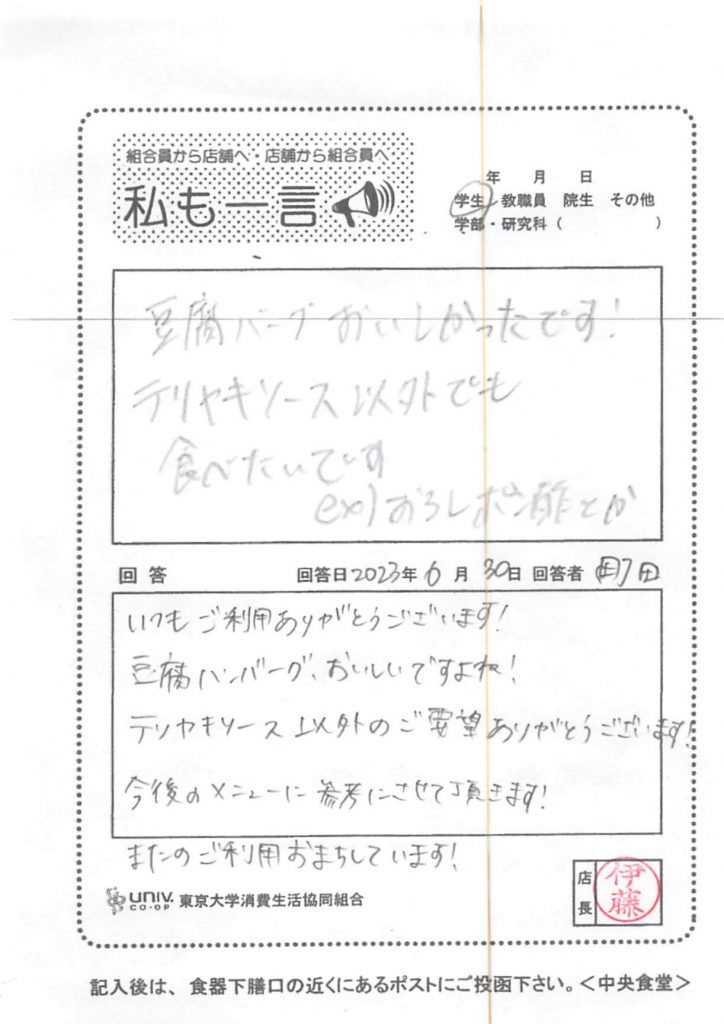 組合員から店舗へ・店舗から組合員へ
私も一言
年 月 日
学生 教職員 院生 その他
学部・研究科 ( )
豆腐バーグおいしかったです!
テリヤキソース以外でも
食べたいです
ex)おろしポン酢とか
回答 回答日2023年6月30日 回答者 田
いつもご利用ありがとうございます!
豆腐ハンバーグ、おいしいですよね!
テリヤキソース以外のご要望ありがとうございます!
今後のメニューに参考にさせて頂きます!
またのご利用おまちしています!
univ. CO-OP 東京大学消費生活協同組合
店長 伊藤
記入後は、食器下膳口の近くにあるポストにご投函下さい。<中央食堂>